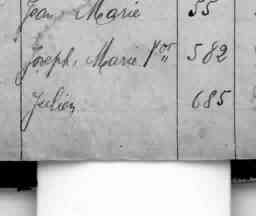 Jean, Marie 55
Joseph, Marie Vor 582
Julien 685